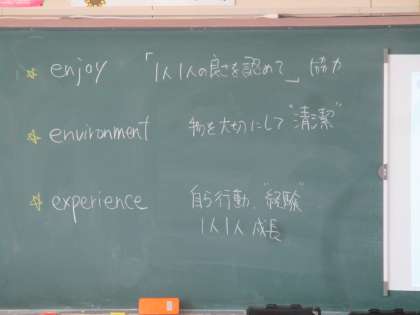 ☆ enjoy 「1人1人の良さを認めて」 協力
☆ environment 物を大切にして "清潔"
☆ experience 自ら行動 "経験"
1人1人 成長